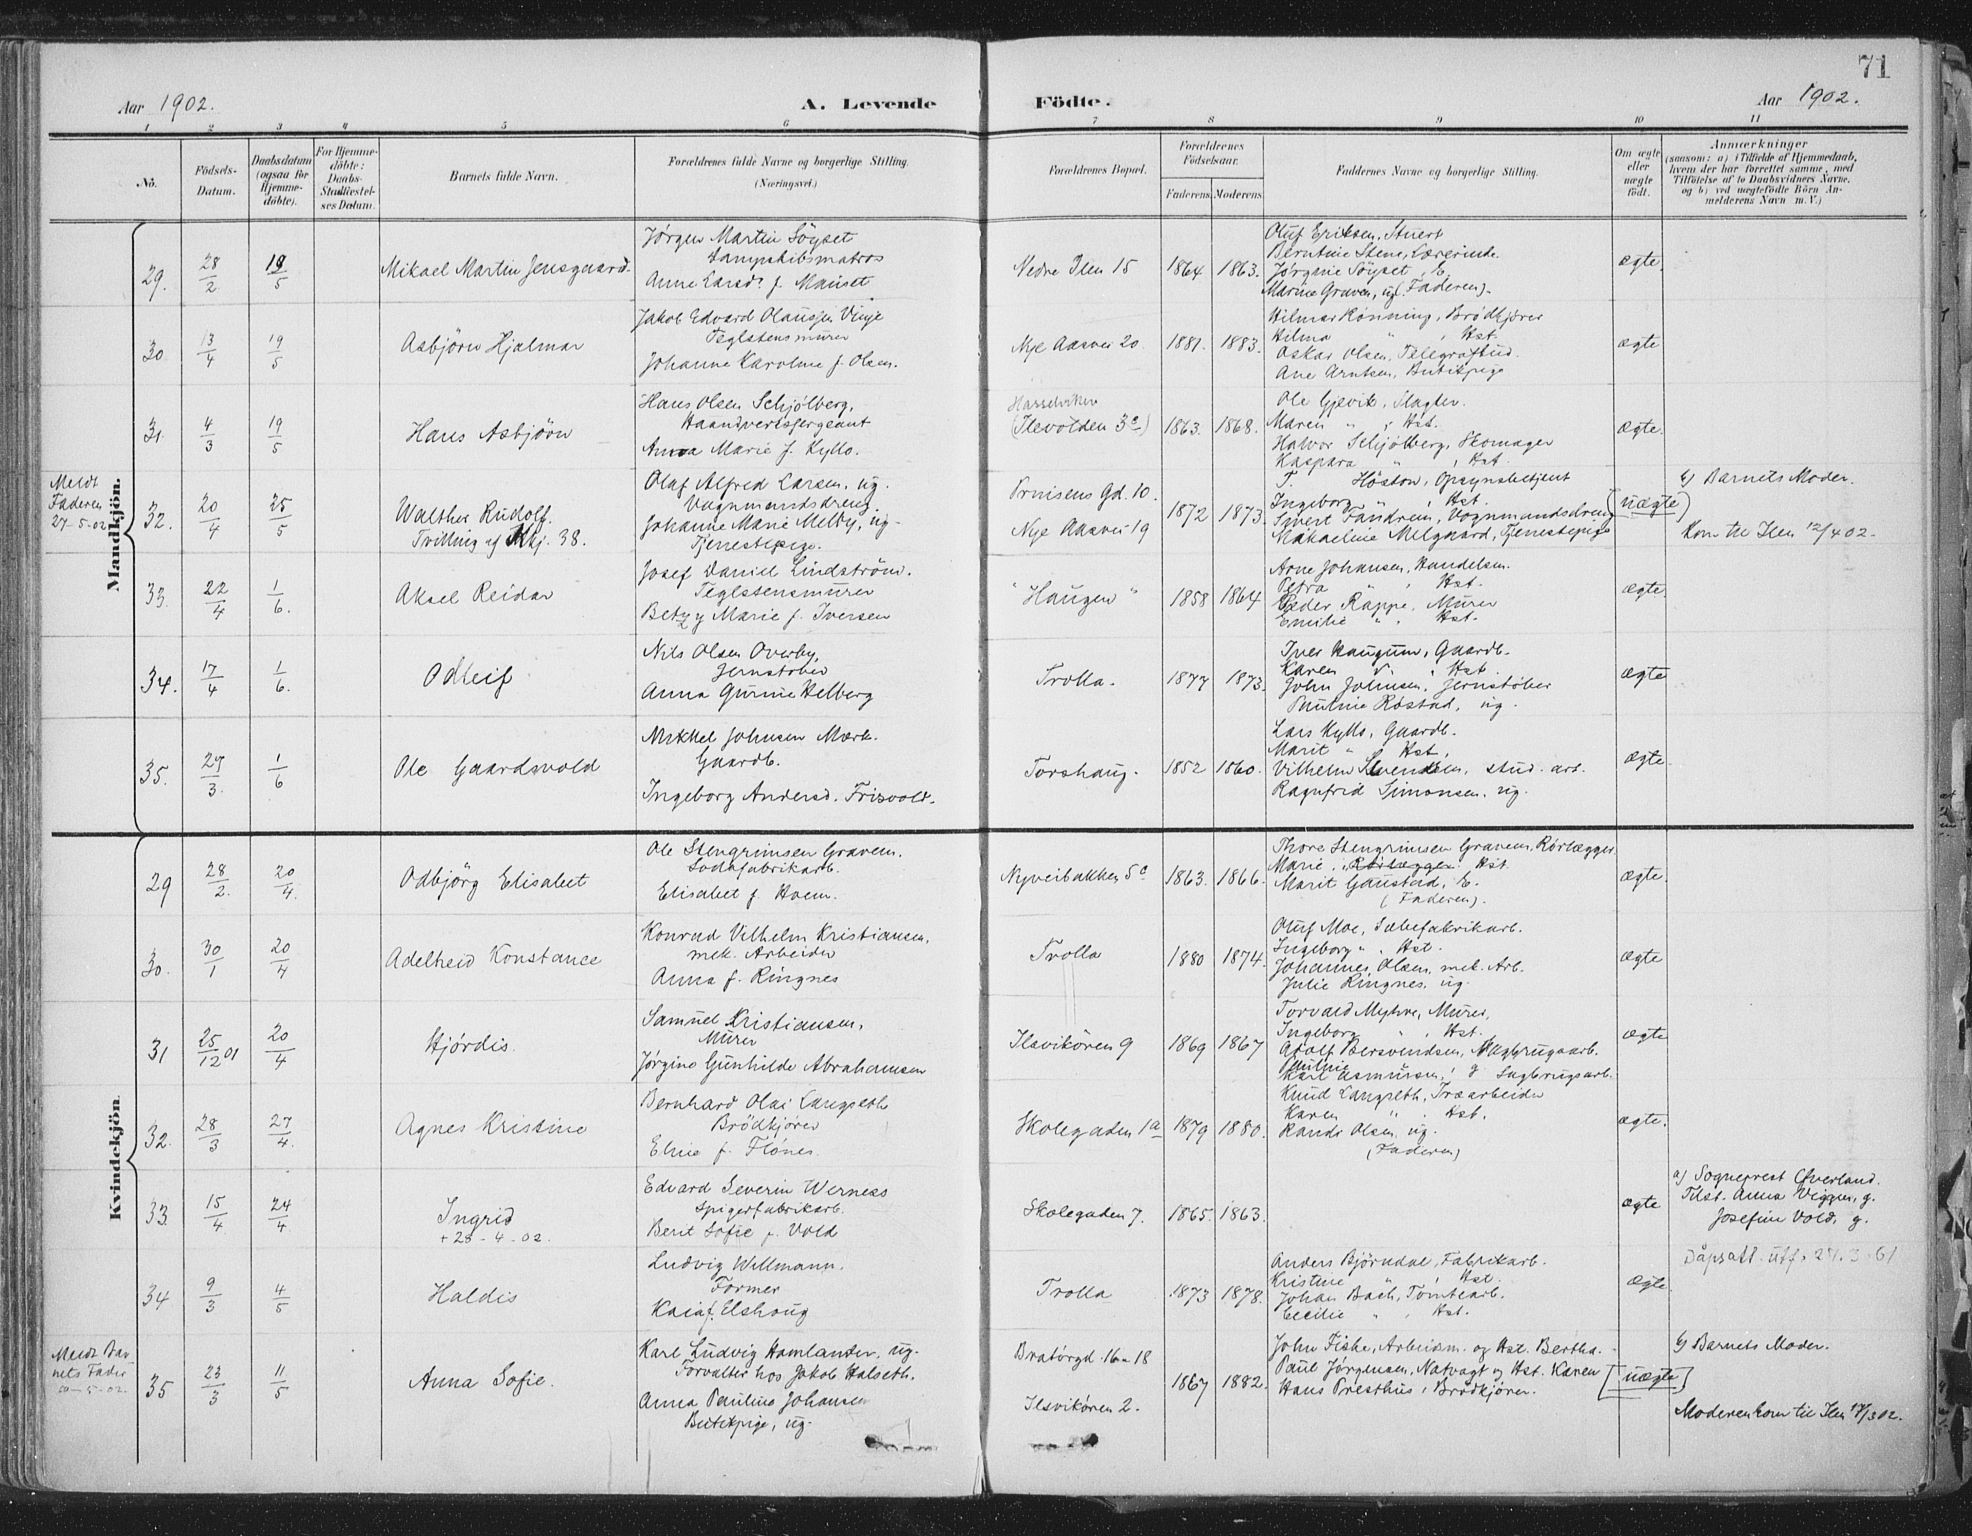 71
Aar 1902.
A. Levende Födte.
Aar 1902.
1 2 3 4 5 6 7 8 9 10 11
No.
Födsels-Datum.
Daabsdatum (ogsaa for Hjemmedöbte).
For Hjemmedöbte: Daabs-Stadfæstelses Datum.
Barnets fulde Navn.
Forældrenes fulde Navne og borgerlige Stilling. (Næringsvei.)
Forældrenes Bopæl.
Forældrenes Födselsaar.
Faderens. Moderens.
Faddernes Navne og borgerlige Stilling.
Om ægte eller uægte født.
Anmærkninger
(saasom: a) i Tilfælde af Hjemmedaab, hvem der har forrettet samme, med Tilföielse af to Daabsvidners Navne, og b) ved uægtefödte Börn Anmelderens Navn m. V.)
Mandkjön.
29. 28/2 18/5 Mikael Martin Jensgaard.
Jørgen Martin Söyset
Dampskibsmatros
Anne Larsd. f. Mauset
Nedre Ilen 15 1864 1863.
Oluf Eriksen, Stuert
Berntine Stene, Lærerinde.
Jørgine Söyset, E.
Marine Graven, ug. (Faderen).
ægte.
30. 13/4 19/5 Asbjörn Hjalmar
Jakob Edvard Olaussen Vinje
Teglstensmurer
Johanne Karoline f. Olsen.
Nye Aasvei 20. 1881. 1883.
Hilmar Rönning, Brödkjörer
Hilma " , Hst.
Oskar Olsen, Telegrafbud.
Ane Arntsen, Butikpige
ægte
31. 4/3 19/5 Hans Asbjörn
Hans Olsen Schjölberg,
Haandverksfergeant
Anna Marie f. Kyllo.
(Ilevolden 3c) 1863. 1868.
Ole Gjevik, Slagter.
Maren " , Hst.
Halvor Schjölberg, Skomager
Kaspara " , Hst.
ægte.
Meldt
Faderen
27-5-02
32. 20/4 25/5 Walther Rudolf.
Tvilling af Kkj. 38.
Olaf Alfred Larsen, ug.
Vognmandsdreng
Johanne Marie Melby, ug.
Tjenestepige.
Prinsens Gd. 10.
Nye Aasvei 19
1872 1873.
T. Höston, Opsynsbetjent
Ingeborg " , Hst.
Sivert Fandrem, Vognmandsdreng
Mikaeline Melgaard, Tjenestepige
(uægte)
b) Barnets Moder.
Kom til Ilen 12/4 02.
33. 22/4 1/6. Aksel Reidar
Josef Daniel Lindström.
Teglstensmurer
Betzy Marie f. Iversen
"Haugen" 1858 1864.
Arne Johansen, Handelsm.
Petra " , Hst.
Peder Rappe, Murer
Emilie " , Hst.
ægte.
34. 17/4 1/6. Odleif
Nils Olsen Overby,
Jernstöber
Anna Gurine Helberg
Trolla. 1877 1873.
Iver Haugum, Gaardb.
Karen " , Hst.
John Johnsen, Jernstöber
Pauline Röstad, ug.
ægte
35. 27/3. 1/6 Ole Gaardsvold
Mikkel Johnsen Mærk.
Gaardb.
Ingeborg Andersd. Frisvold.
Torshaug. 1852 1860.
Lars Kyllo, Gaardb.
Marit " Hst,
Vilhelm Svendsen, stud. art.
Ragnfrid Simonsen, ug.
ægte.
Kvindekjön.
29 28/2. 20/4. Odbjörg Elisabet
Ole Stengrimsen Gravem.
Sodafabrikarb.
Elisabet f. Hoem.
Nyveibakken 5c 1863. 1866.
Thore Stengrimsen Gravem, Rörlægger
Marie, Rörlægger. Hst.
Marit Gaustad, E.
(Faderen).
ægte.
30. 30/1 20/4 Adelheid Konstance
Konrad Vilhelm Kristiansen,
mek. Arbeider
Anna f. Ringnes
Trolla 1880 1874.
Oluf Moe, Sæbefabrikarb.
Ingeborg " , Hst.
Johannes Olsen, mek. Arb.
Julie Ringnes, ug.
ægte
31 25/12 01 20/4 Hjördis.
Samuel Kristiansen,
Murer
Jörgine Gunhilde Abrahamsen
Ilsvikören 9 1869 1867
Torvald Myhre, Murer,
Ingeborg " , Hst.
Adolf Bersvendsen, Sagbrugsarb.
Pauline
Karl Asmunsen, g Sagbrugsarb.
ægte
32. 28/3 27/4. Agnes Kristine
Bernhard Olai Langseth
Brödkjörer
Eline f. Flönes
Skolegaden 1a 1879 1880.
Knud Langseth, Træarbeider
Karen " , Hst.
Randi Olsen, ug.
(Faderen)
ægte.
33. 15/4 24/4. Ingrid
+ 28-4-02.
Edvard Severin Werness
Spigerfabrikarb.
Berit Sofie f. Vold
Skolegaden 7. 1865. 1863.
ægte
a) Sogneprest Överland.
Tilst. Anna Viggen, g.
Josefine Vold, g.
34 9/3 4/5 Haldis
Ludvig Willmann.
Former
Kaia f. Elshoug
Trolla 1873 1878.
Anders Björndal, Fabrikarb.
Kristine " , Hst.
Johan Bach, Tomtearb.
Cecilie " , Hst.
ægte.
Dåpsatt. utf. 27.3.61
Meldt Barnets Fader
20-5-02.
35 23/3 11/5 Anna Sofie.
Karl Ludvig Hamlander, ug.
Forvalter hos Jakob Halseth.
Anna Pauline Johansen
Butikpige, ug.
Bratörgd. 16a 18
Ilsvikören 2.
1867 1882.
John Fiske, Arbeidsm. og Hst. Bertha.
Paul Jörgensen, Natvagt og Hst. Karen
Hans Presthus, Brödkjörer.
[uægte]
b) Barnets Moder.
Moderen kom til Ilen 17/3 02.